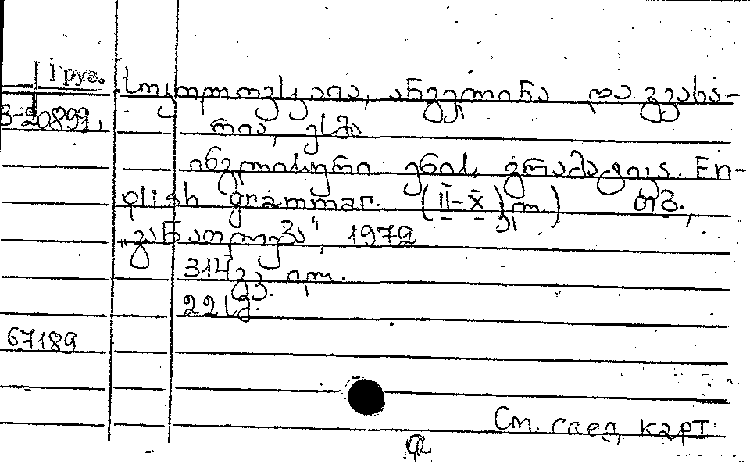 Груз.
სოკოლოვსკაია, ანგელინა და გვახა-
Б-20899.
რია, ესმა
ინგლისური ენის გრამატიკა. En-
glish grammar. (II-X კლ.) თბ.,
„განათლება“, 1972
314 გვ. ილ.
22 სმ.
67189
См. след карт.